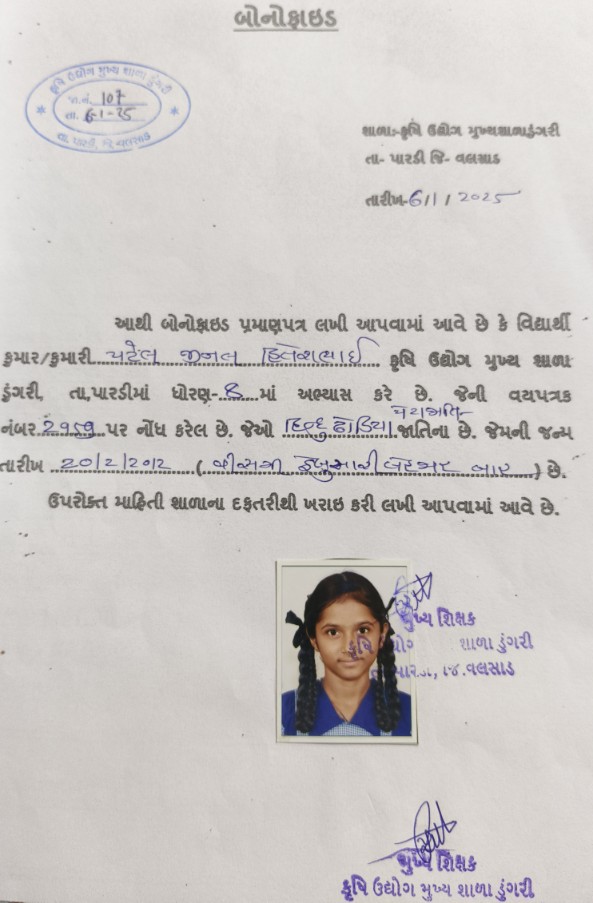 બોનોફાઇડ
કૃષિ ઉદ્યોગ મુખ્ય શાળા ડુંગરી
જા.નં. 107
તા. 6-1-25
તા. પારડી, જિ. વલસાડ
શાળા:-કૃષિ ઉદ્યોગ મુખ્યશાળાડુંગરી
તા- પારડી જિ- વલસાડ
તારીખ-6/1/2025
આથી બોનોફાઇડ પ્રમાણપત્ર લખી આપવામાં આવે છે કે વિદ્યાર્થી
કુમાર/કુમારી પટેલ જીનલ હિતેશભાઈ કૃષિ ઉદ્યોગ મુખ્ય શાળા
ડુંગરી, તા,પારડીમાં ધોરણ-8 માં અભ્યાસ કરે છે. જેની વયપત્રક
નંબર ૨૧૫૭ પર નોંધ કરેલ છે. જેઓ હિન્દુ ઢોડિયા જાતિના છે. જેમની જન્મ
તારીખ 20/2/2012 (વીસમી ફેબ્રુઆરી બેહજાર બાર) છે.
ઉપરોક્ત માહિતી શાળાના દફતરીથી ખરાઇ કરી લખી આપવામાં આવે છે.
મુખ્ય શિક્ષક
કૃષિ શાળા ડુંગરી
વલસાડ
મુખ્ય શિક્ષક
કૃષિ ઉદ્યોગ મુખ્ય શાળા ડુંગરી